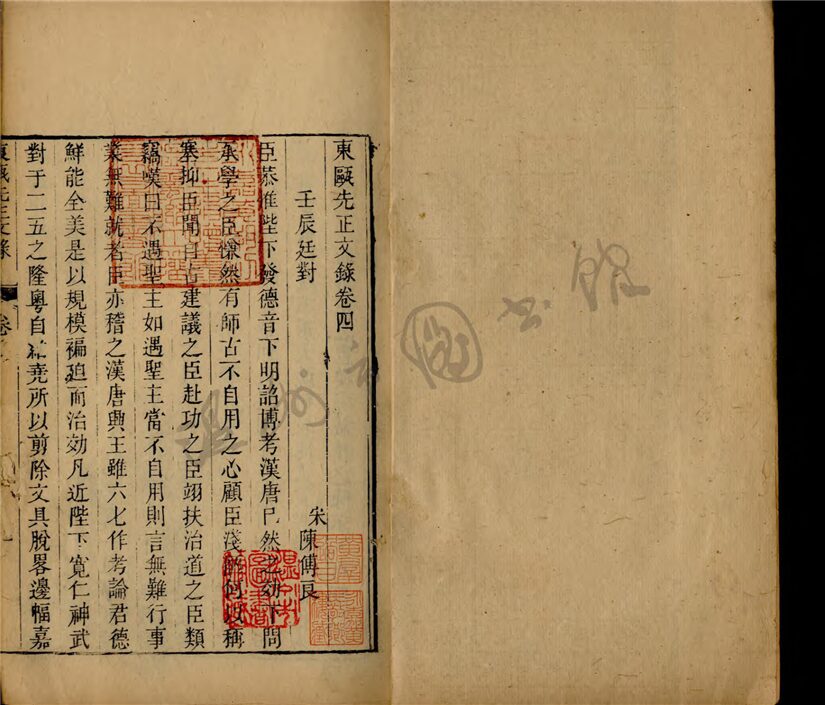 東甌先正文錄卷四
壬辰廷對
宋 陳傅良
臣恭惟陛下發德音下明詔博考漢唐已然之効下問
承學之臣慊然有師古不自用之心顧臣淺何稱
塞抑臣聞自古建議之臣赴功之臣翊扶治道之臣類
竊嘆曰不遇聖主如遇聖主當不自用則言無難行事
業無難就者臣亦稽之漢唐興王雖六七作考論君德
鮮能全美是以規模褊迫而治効凡近陛下寬仁神武
對于二五之隆粤自堯所以剪除文具脫畧邊幅嘉
東甌先正文錄
卷
溫州市圖書館